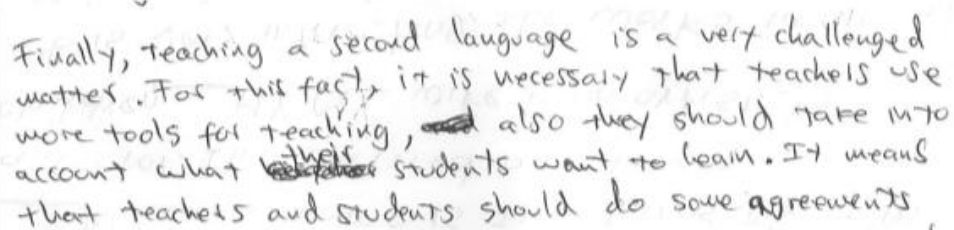 Finally, teaching a second language is a very challenged
matter. For this fact, it is necessary that teachers use
more tools for teaching, also they should take into
account what their students want to learn. It means
that teachers and students should do some agreements